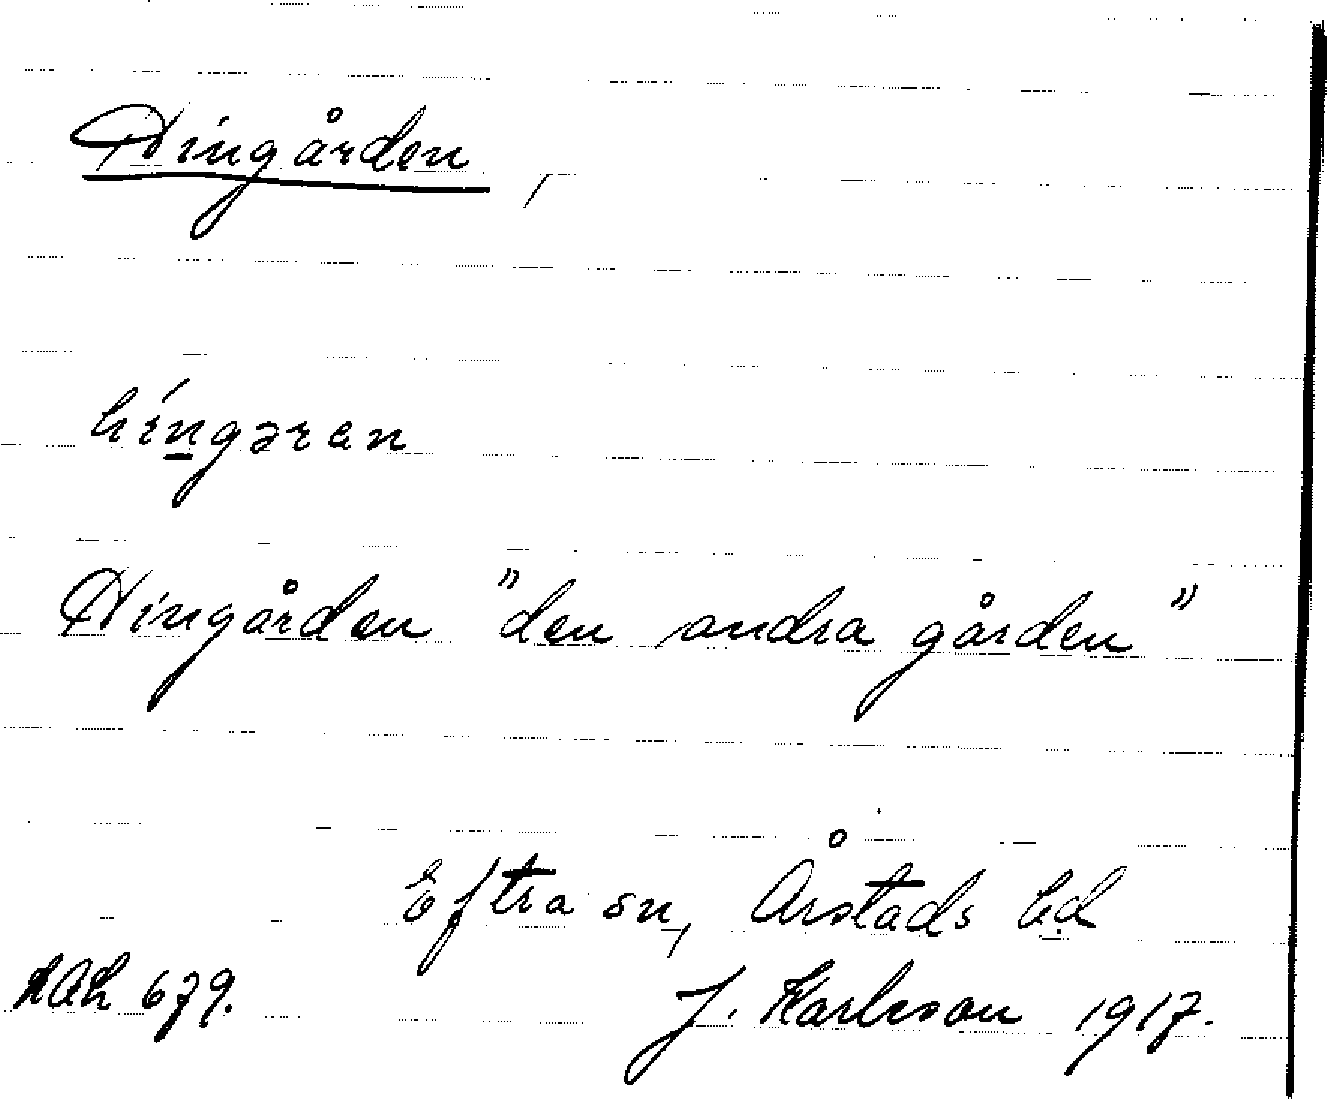 Hingården,
hingəren
Hingården "den andra gården"
Eftra sn, Årstads hd
J. Karlsson 1917.